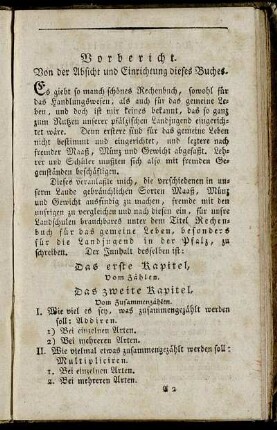 Vorbericht.
Von der Absicht und Einrichtung dieses Buches.
Es giebt so manch schönes Rechenbuch, sowohl für
das Handlungswesen, als auch für das gemeine Le-
ben, und doch ist mir keines bekannt, das so ganz
zum Nutzen unserer pfälzischen Landjugend eingerich-
tet wäre. Denn erstere sind für das gemeine Leben
nicht bestimmt und eingerichtet, und leztere nach
fremder Maaß, Münz und Gewicht abgefaßt. Leh-
rer und Schüler mußten sich also mit fremden Ge-
genständen beschäftigen.
Dieses veranlaßte mich, die verschiedenen in un-
serm Lande gebräuchlichen Sorten Maaß, Münz
und Gewicht ausfindig zu machen, fremde mit den
unsrigen zu vergleichen und nach diesen ein, für unsre
Landschulen brauchbares unter dem Titel, Rechen-
buch für das gemeine Leben, besonders
für die Landjugend in der Pfalz, zu
schreiben. Der Innhalt desselben ist:
Das erste Kapitel,
Vom Zählen.
Das zweite Kapitel.
Vom Zusammenzählen.
I. Wie viel es sey, was zusammengezählt werden
soll: Addiren.
1) Bei einzelnen Arten.
2) Bei mehreren Arten.
II. Wie vielmal etwas zusammengezählt werden soll:
Multipliciren.
1. Bei einzelnen Arten.
2. Bei mehreren Arten.
A 2